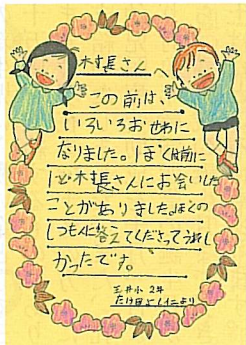 村長さんへ
この前は、
いろいろおせわに
なりました。ぼくは前に
1ど村長さんにお会いした
ことがありました。ぼくの
しつもんに答えてくださってうれし
かったです。
三井小 2年
より